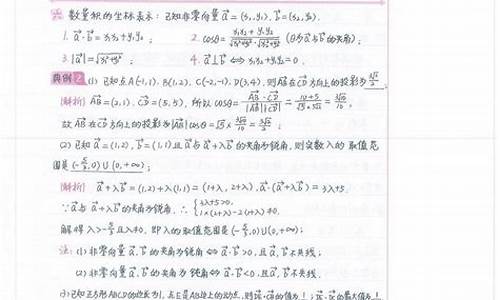 六 数量积的坐标表示：已知非零向量a⃗=(x₁,y₁), b⃗=(x₂,y₂).
1. a⃗·b⃗ = x₁x₂+y₁y₂ ; 2. cosθ= (x₁x₂+y₁y₂)/(√(x₁²+y₁²)·√(x₂²+y₂²)) (θ为a⃗与b⃗的夹角) ;
3. |a⃗|=√(x₁²+y₁²) ; 4. a⃗⊥b⃗ ⇔ x₁x₂+y₁y₂=0 .
典例2 (1) 已知点A(-1,1), B(1,2), C(-2,-1), D(3,4), 则AB⃗在CD⃗方向上的投影为 3√2/2 ;
[解析] AB⃗=(2,1), CD⃗=(5,5), 所以cosθ= AB⃗·CD⃗/(|AB⃗||CD⃗|) = (10+5)/(√5×5√2) = 3√10/10 ,
故AB⃗在CD⃗方向上的投影为|AB⃗|cosθ=√5×3√10/10=3√2/2 ;
(2) 已知a⃗=(1,2), b⃗=(1,1)且a⃗与a⃗+λb⃗的夹角为锐角, 则实数λ的取值范
围是(-5/3,0)∪(0,+∞) ;
[解析] a⃗+λb⃗=(1,2)+λ(1,1)=(1+λ,2+λ), a⃗·(a⃗+λb⃗)=3λ+5.
∵a⃗与a⃗+λb⃗的夹角为锐角, ∴ { 3λ+5>0, 1×(2+λ)-2(1+λ)≠0.
解得λ>-5/3且λ≠0, 即λ的取值范围是(-5/3,0)∪(0,+∞) ;
注: (1) 非零向量a⃗,b⃗的夹角为锐角⇔a⃗·b⃗>0, 且a⃗,b⃗不共线;
(2) 非零向量a⃗,b⃗的夹角为钝角⇔a⃗·b⃗<0, 且a⃗,b⃗不共线.
(3) 已知正方形ABCD的边长为1, 点E是AB边上的动点, 则